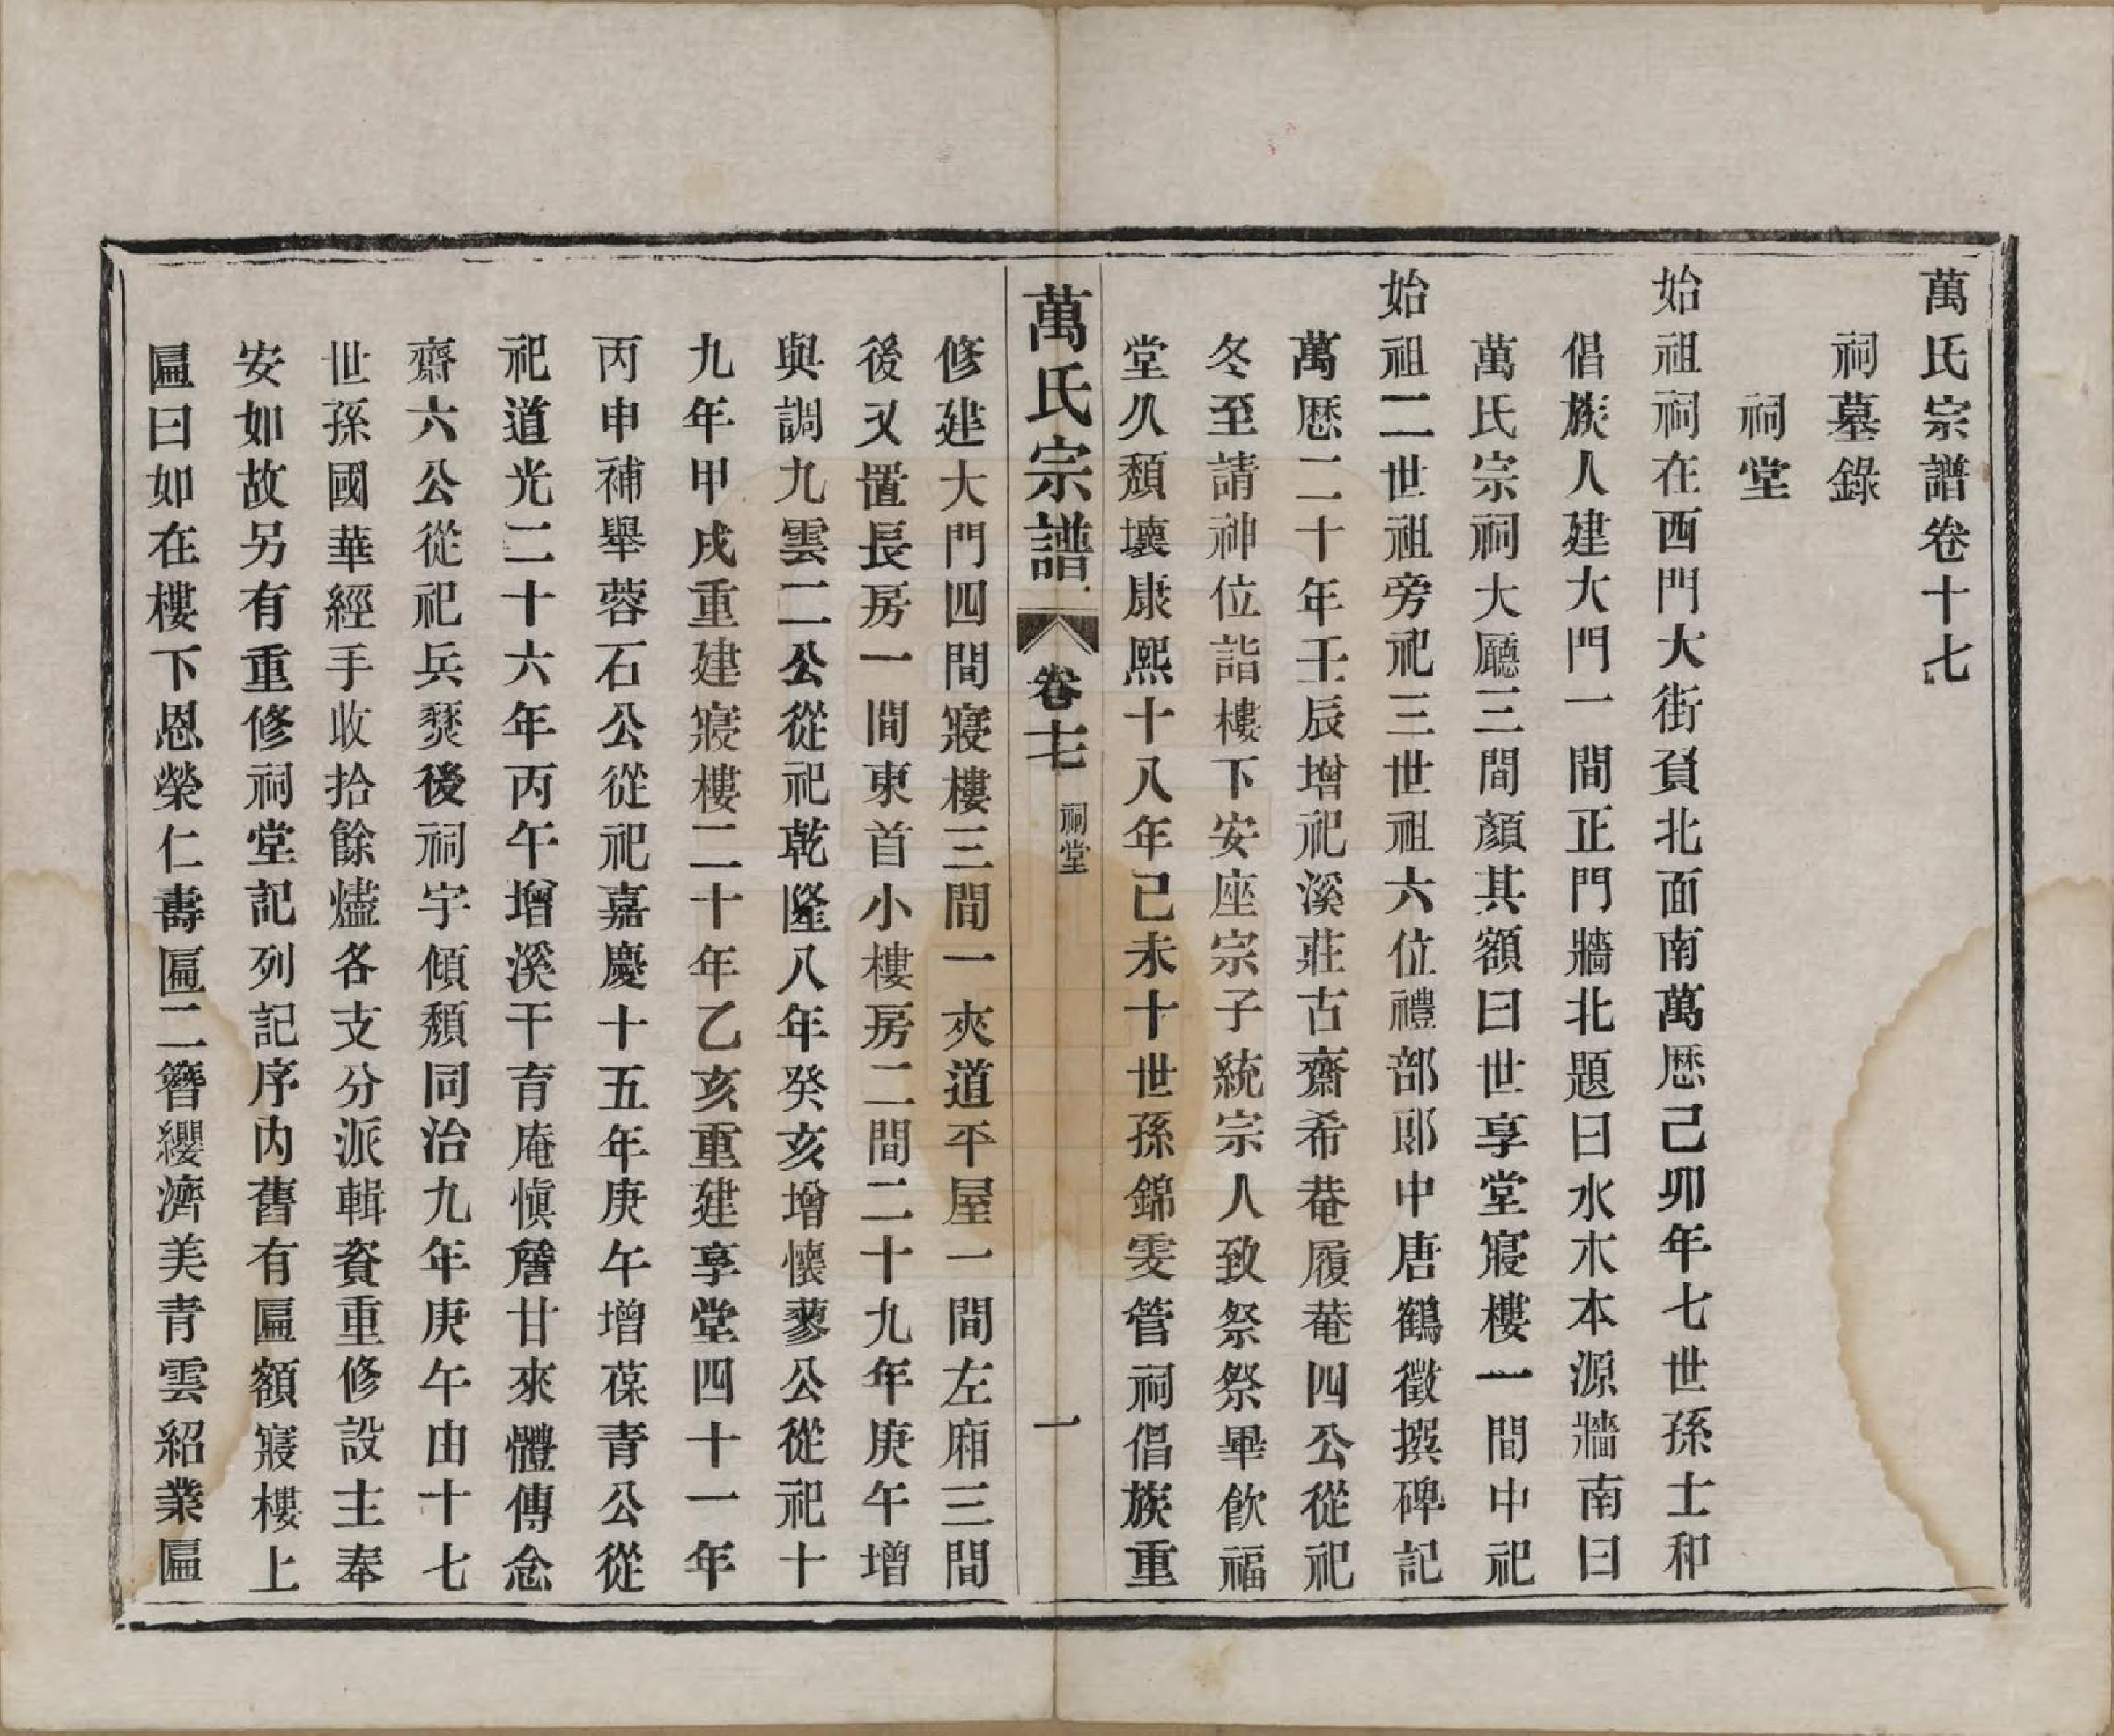 萬氏宗譜卷十七
祠墓錄
祠堂
始祖祠在西門大街負北面南萬厯己卯年七世孫士和
倡族人建大門一間正門牆北題曰水木本源牆南曰
萬氏宗祠大廳三間顏其額曰世享堂寢樓一間中祀
始祖二世祖旁祀三世祖六位禮部郎中唐鶴徵撰碑記
萬厯二十年壬辰增祀溪莊古齋希菴履菴四公從祀
冬至請神位詣樓下安座宗子統宗人致祭祭畢飲福
堂久頹壞康熙十八年己未十世孫錦雯管祠倡族重
萬氏宗譜 卷十七 祠堂 一
修建大門四間寢樓三間一夾道平屋一間左廂三間
後又置長房一間東首小樓房二間二十九年庚午增
與調九雲二公從祀乾隆八年癸亥增懷蓼公從祀十
九年甲戌重建寢樓二十年乙亥重建享堂四十一年
丙申補舉蓉石公從祀嘉慶十五年庚午增葆青公從
祀道光二十六年丙午增溪干育庵愼簷甘來體傳念
齋六公從祀兵燹後祠宇傾頹同治九年庚午由十七
世孫國華經手收拾餘燼各支分派輯資重修設主奉
安如故另有重修祠堂記列記序内舊有匾額寢樓上
匾曰如在樓下恩榮仁壽匾二簪纓濟美青雲紹業匾